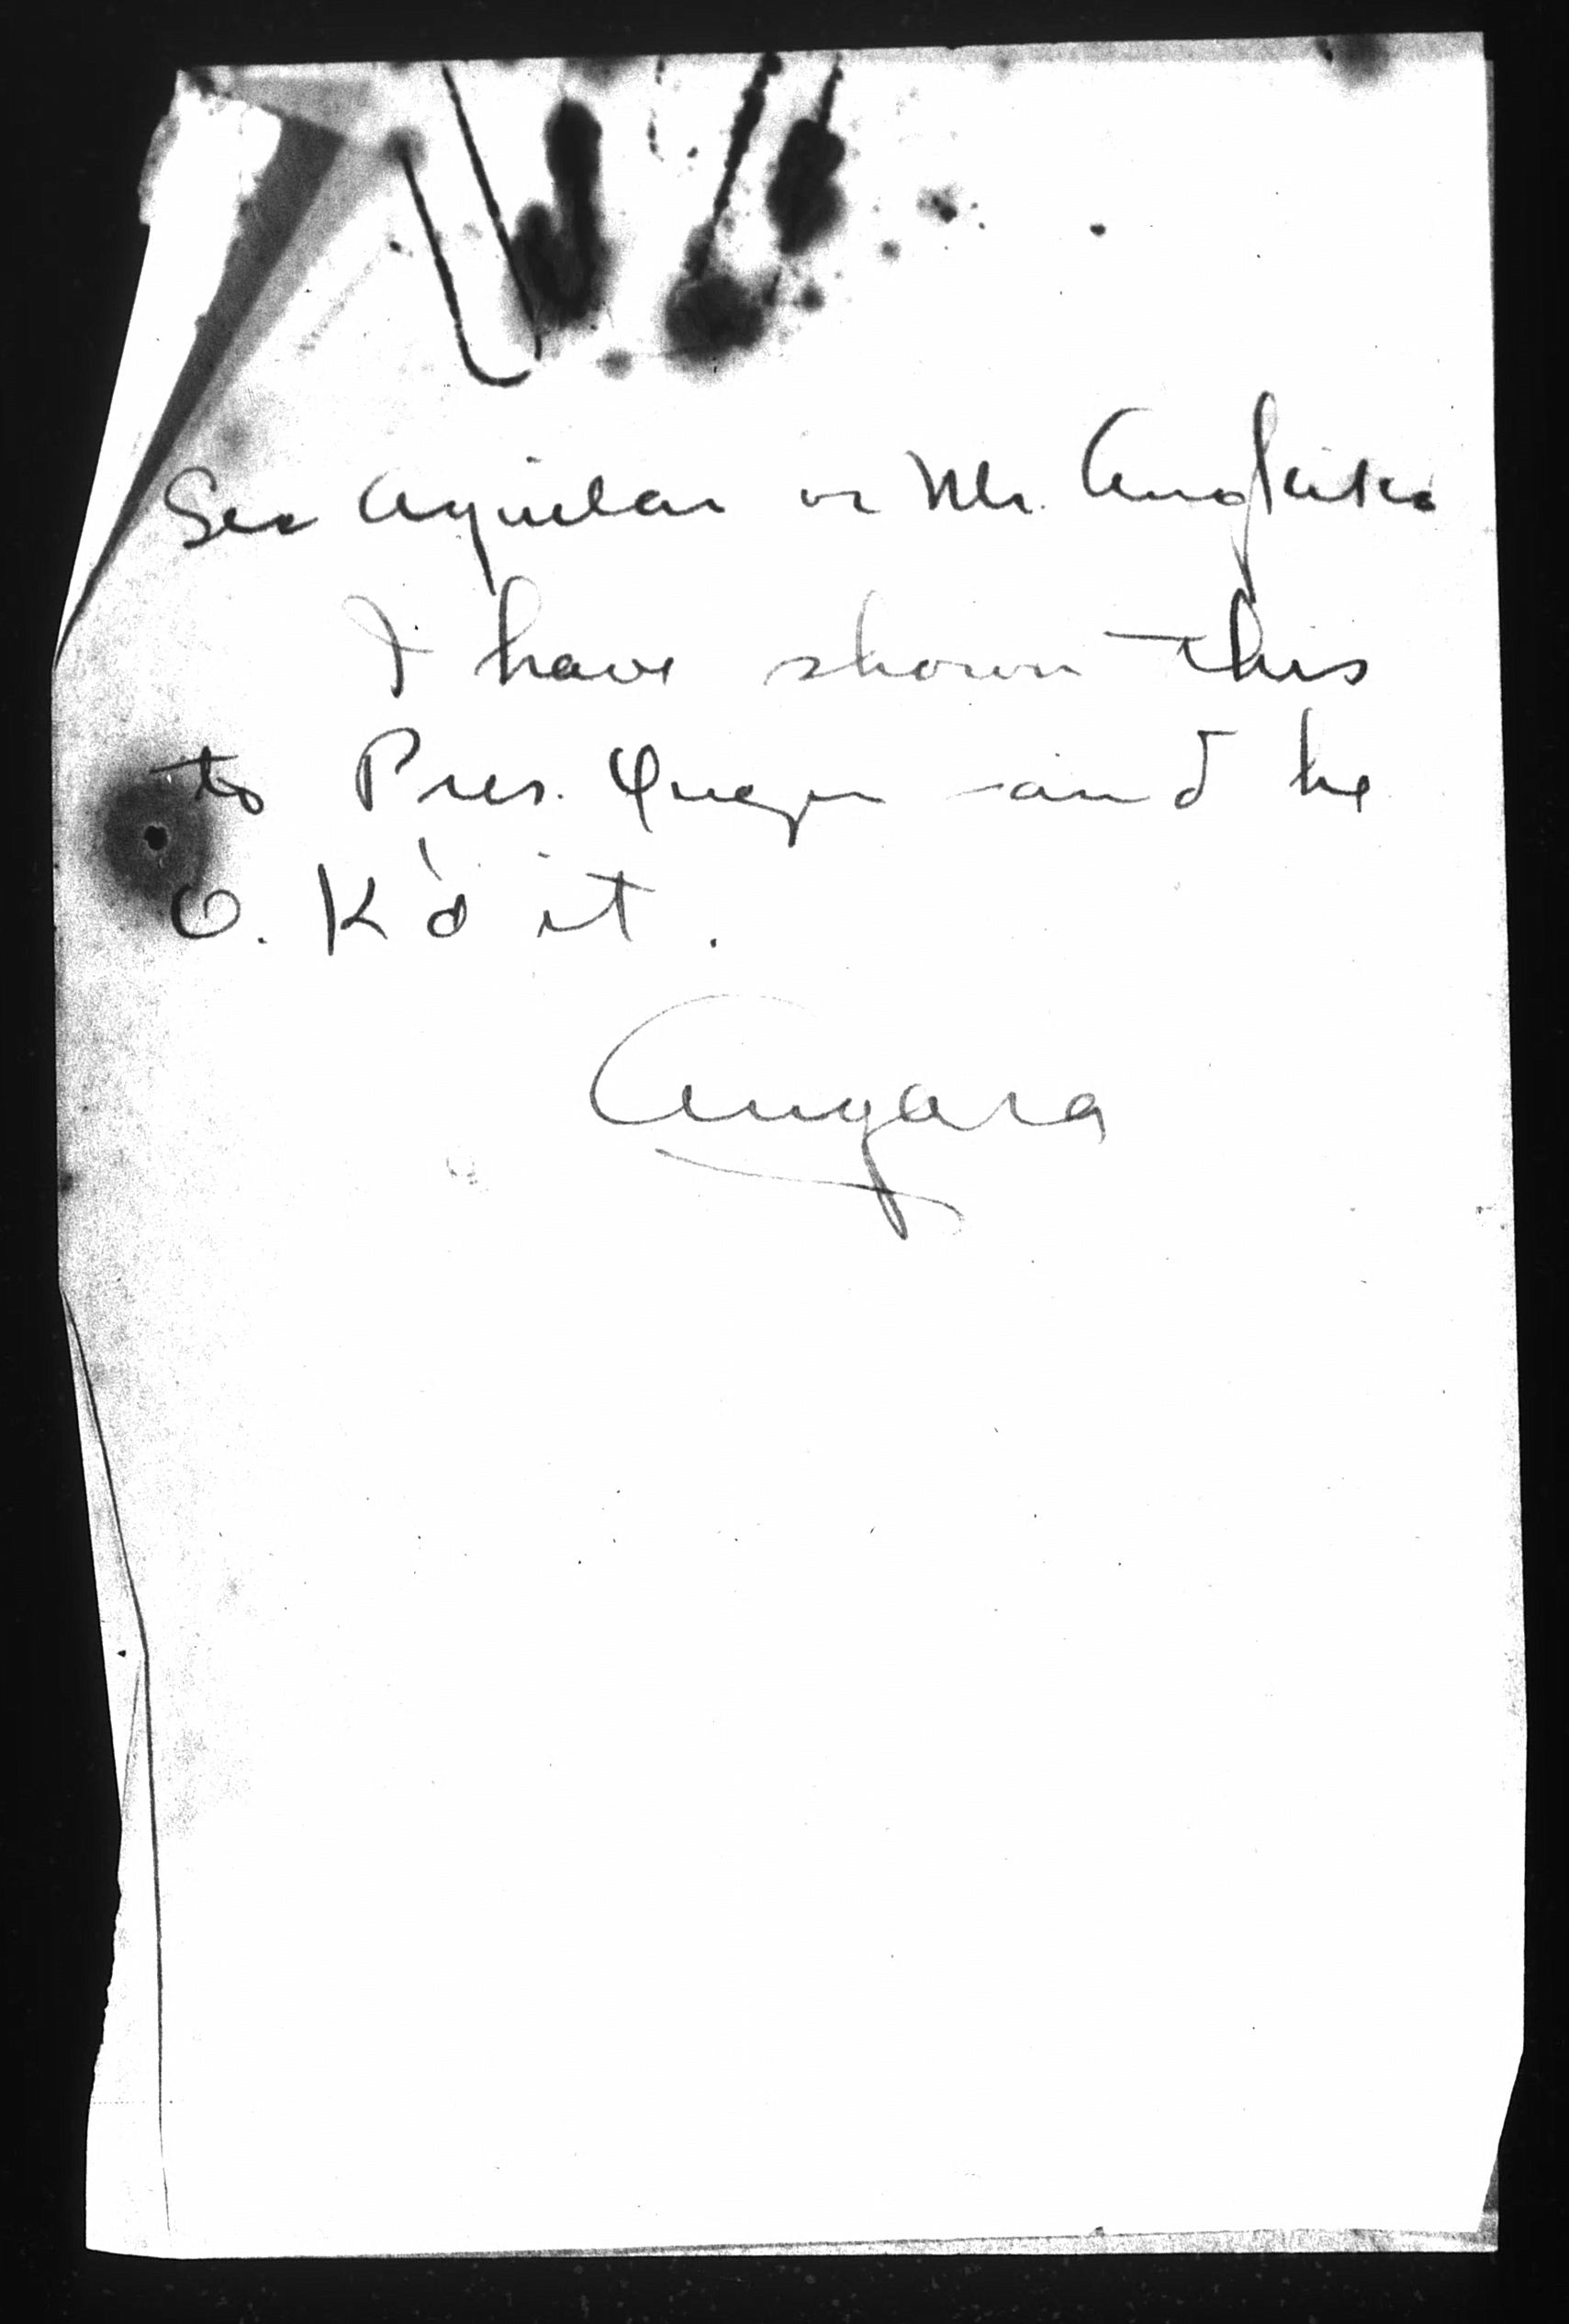 See Aguilar or Mr.
I have shown this
to Pres. Quezon and he
O. K'd it.
Angara